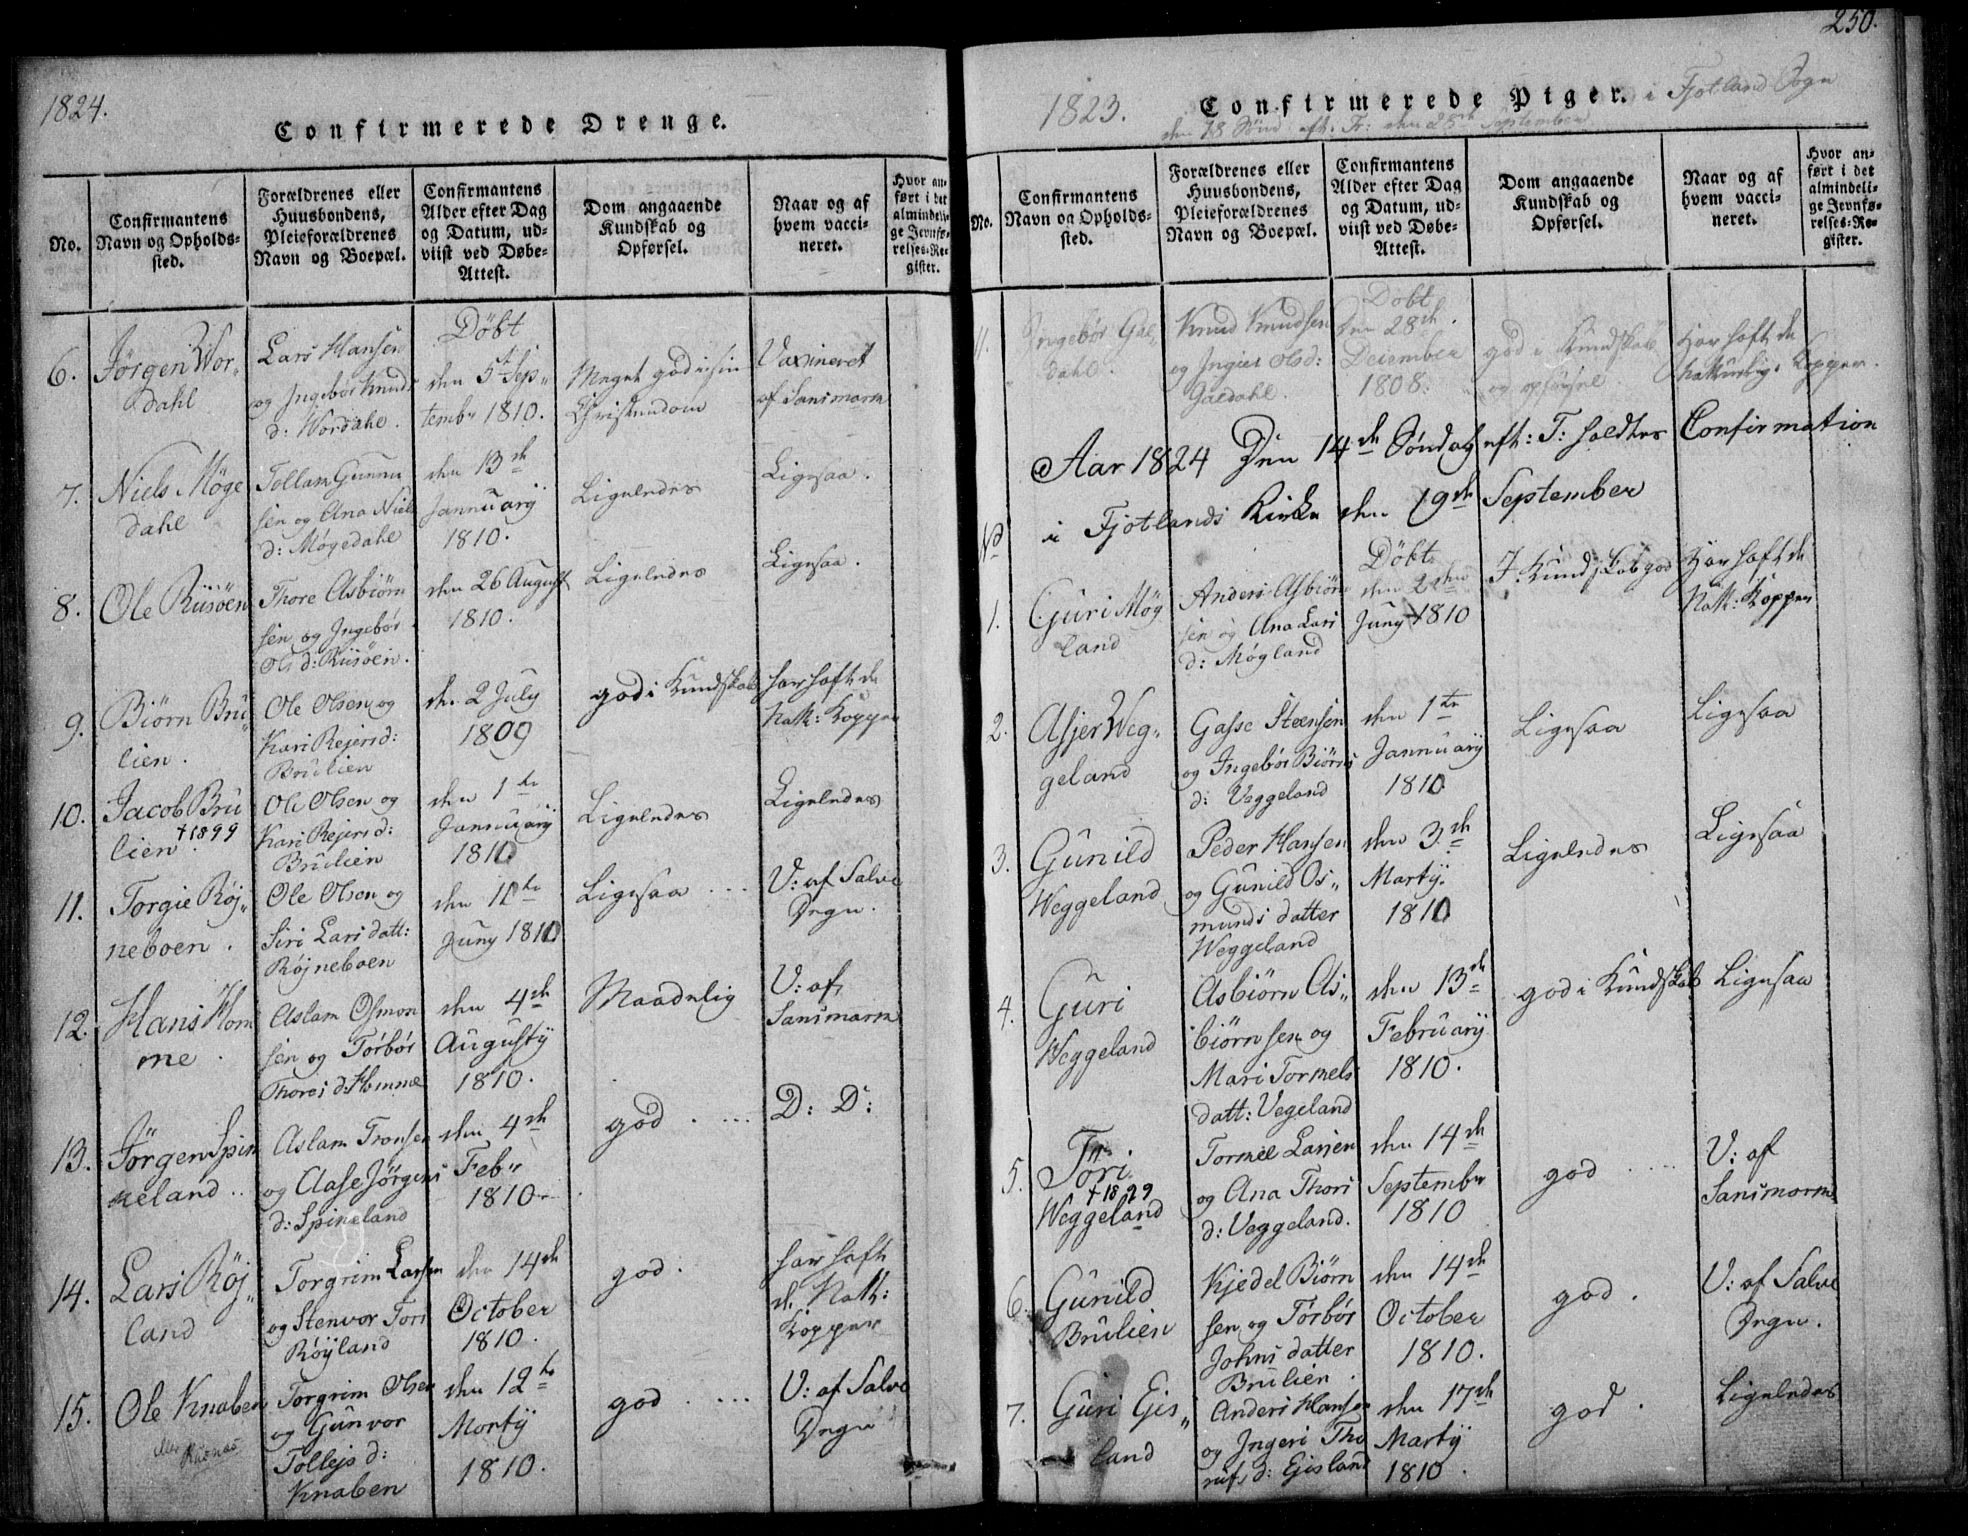 1824.
Confirmerede Drenge.
No.
Confirmantens
Navn og Opholds-
sted.
Forældrenes eller
Huusbondens,
Pleieforældrenes
Navn og Boepæl.
Confirmantens
Alder efter Dag
og Datum, ud-
viist ved Døbe-
Attest.
Dom angaaende
Kundskab og
Opførsel.
Naar og af
hvem vacci-
neret.
Hvor an-
ført i det
almindeli-
ge Jevnfø-
relses-Re-
gister.
6.
Jørgen Wor-
dahl
Lars Hansen
og Ingebør Knuds
d: Wordahl.
Döbt
den 5t Sep-
tembr 1810.
Meget god i sin
Christendom
Vaxineret
af Sansmarm
7.
Niels Möge
dahl
Tollam Gunnu
sen og Ana Niels
d: Møgedahl
den 13de
Jannuarij
1810.
Ligeledes
Ligesaa.
8.
Ole Riisöen
Thore Asbiörn
sen og Ingebör
Ols d: Riisöen.
den 26 August
1810.
Ligeledes
Ligesaa.
9.
Biörn Bru
lien.
Ole Olsen og
Kari Rejers d:
Brulien
den 2 July
1809
god i Kundskab
har hafte de
Natt: Kopper
10.
Jacob Bru
lien
†1899
Ole Olsen og
Kari Rejers d:
Brulien
den 1te
Jannuarij
1810
Ligeledes
Ligeledes
11.
Torgie Röj-
neboen.
Ole Olsen og
Siri Lars datt:
Röjneboen
den 11te
Juny 1810
Ligesaa ...
V: af Salve
Degn.
12.
Hans Hom
me.
Aslam Osmon
sen og Torbör
Thores d: Homme
den 4de
Augustij
1810.
Maadelig
V: af
Sansmarm
13.
Jörgen Spin
keland..
Aslam Tronsen
og Aase Jörgens
d: Spineland
den 4de
Febr
1810.
god ....
D: D:
14.
Lars Röj-
land
Torgrim Larsen
og Stenvor Tori
Röyland
den 14de
October
1810.
god.
har hafte
de Natt:
Kopper
15.
Ole Knaben
eller Kusnes
Torgrim Olsen
og Gunvor
Tollejs d:
Knaben
den 12te
Martij
1810.
god ....
V: af Salve
Degn
250.
1823.
Confirmerede Piger. i Fjotland Sogn
den 18 Sönd: eft: Tr: den 28de September
No.
Confirmantens
Navn og Opholds-
sted.
Forældrenes eller
Huusbondens,
Pleieforældrenes
Navn og Boepæl.
Confirmantens
Alder efter Dag
og Datum, ud-
viist ved Døbe-
Attest.
Dom angaaende
Kundskab og
Opførsel.
Naar og af
hvem vacci-
neret.
Hvor an-
ført i det
almindeli-
ge Jevnfø-
relses-Re-
gister.
11.
Ingebör Gae-
dahl.
Knud Knudsen
og Inger Olsd:
Gaedahl.
Döbt
den 28de
December
1808.
god i Kundskab
og opførsel.
Har hafte de
Natturlige Kopper.
Aar 1824 Den 14de Söndag eft: T: holdtes Confirmation
i Fjotlands Kirke den 19de September
No
1.
Guri Mög
land
Anders Asbiörn
sen og Ana Lars
d: Mögland
Döbt
den 2den
Juny 1810
I Kundskab god
Har hafte de
Natt: Kopper
2.
Asjer Weg-
geland
Gasse Steensen
og Ingebör Biörns
d: Veggeland
den 1te
Jannuarij
1810
Ligesaa
Ligesaa
3.
Gunild
Weggeland
Peder Hansen
og Gunild Os-
munds datter
Weggeland
den 3de
Martij.
1810
Ligeledes
Ligesaa
4.
Guri
Weggeland
Asbiörn As-
biörnsen og
Mari Tormels
datt: Vegeland
den 13de
Februarij
1810.
god i Kundskab
Ligesaa
5.
Tori
†1899
Weggeland
Tormel Larsen
og Ana Thors
d: Veggeland.
den 14de
September
1810
god ....
V: af
Sansmarm
6.
Gunild
Brulien
Kjedel Biörn
sen og Törbör
Johns datter
Brulien.
den 14de
October
1810.
god.
V: af Salve
Degn.
7.
Guri Eis-
land
Anders Hansen
og Ingeri Tho
d: Ejsland
den 17de
Martij
1810.
god.
Ligeledes